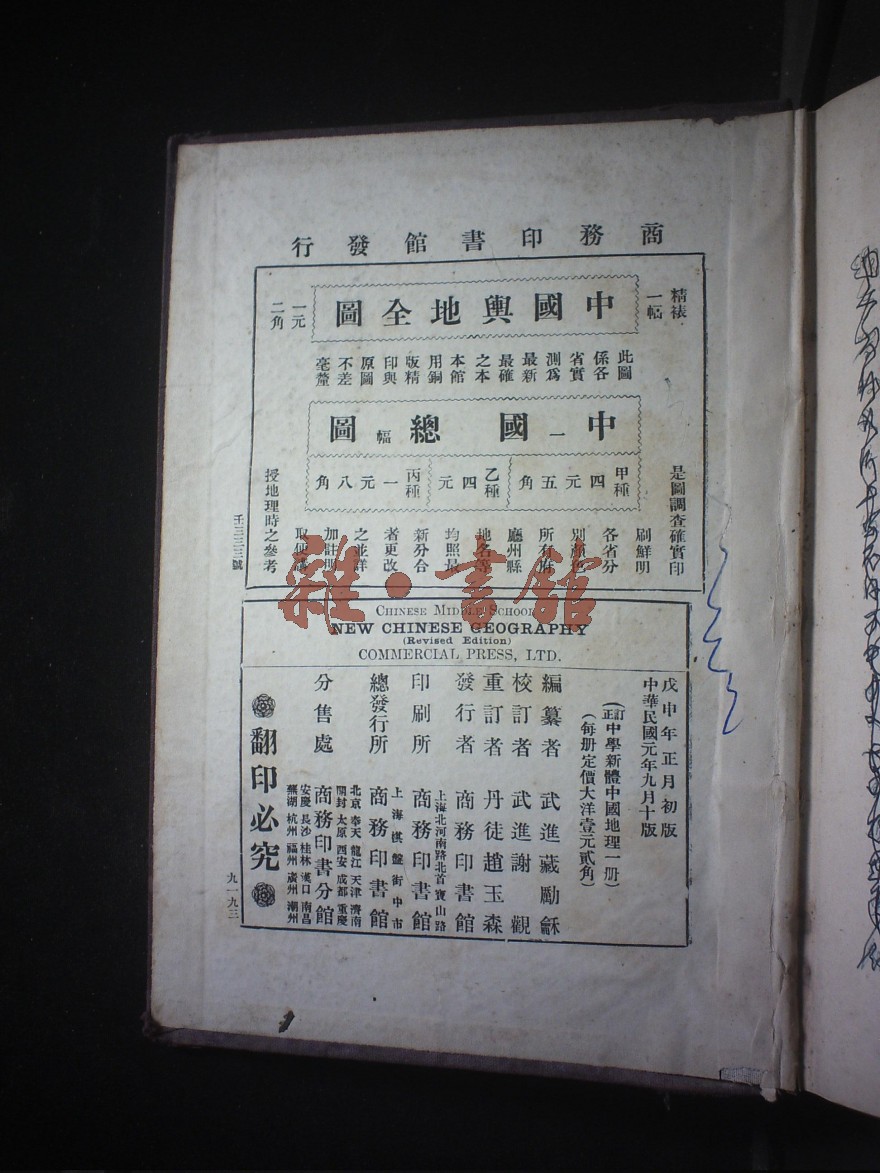 商務印書館發行
精裱一幅
中國輿地全圖
一元二角
此圖
係各
省實
測爲
最新
最確
之本
本館
用銅
版精
印與
原圖
不差
毫釐
中國總圖
一幅
甲種四元五角
乙種四元
丙種一元八角
是圖調查確實印
刷鮮明
各省分
別顏色
所有府
廳州縣
地名等
均照最
新分合
者更改
之並詳
加註明
取便講
授地理時之參考
壬三三三號
雜·書館
CHINESE MIDDLE SCHOOL
NEW CHINESE GEOGRAPHY
(Revised Edition)
COMMERCIAL PRESS, LTD.
戊申年正月初版
中華民國元年九月十版
(訂正中學新體中國地理一册)
(每册定價大洋壹元貳角)
編纂者 武進藏勵龢
校訂者 武進謝觀
重訂者 丹徒趙玉森
發行者 商務印書館
上海北河南路北首寶山路
印刷所 商務印書館
上海棋盤街中市
總發行所 商務印書館
北京 奉天 龍江 天津 濟南
開封 太原 西安 成都 重慶
分售處 商務印書分館
安慶 長沙 桂林 漢口 南昌
蕪湖 杭州 福州 廣州 潮州
翻印必究
九一九三